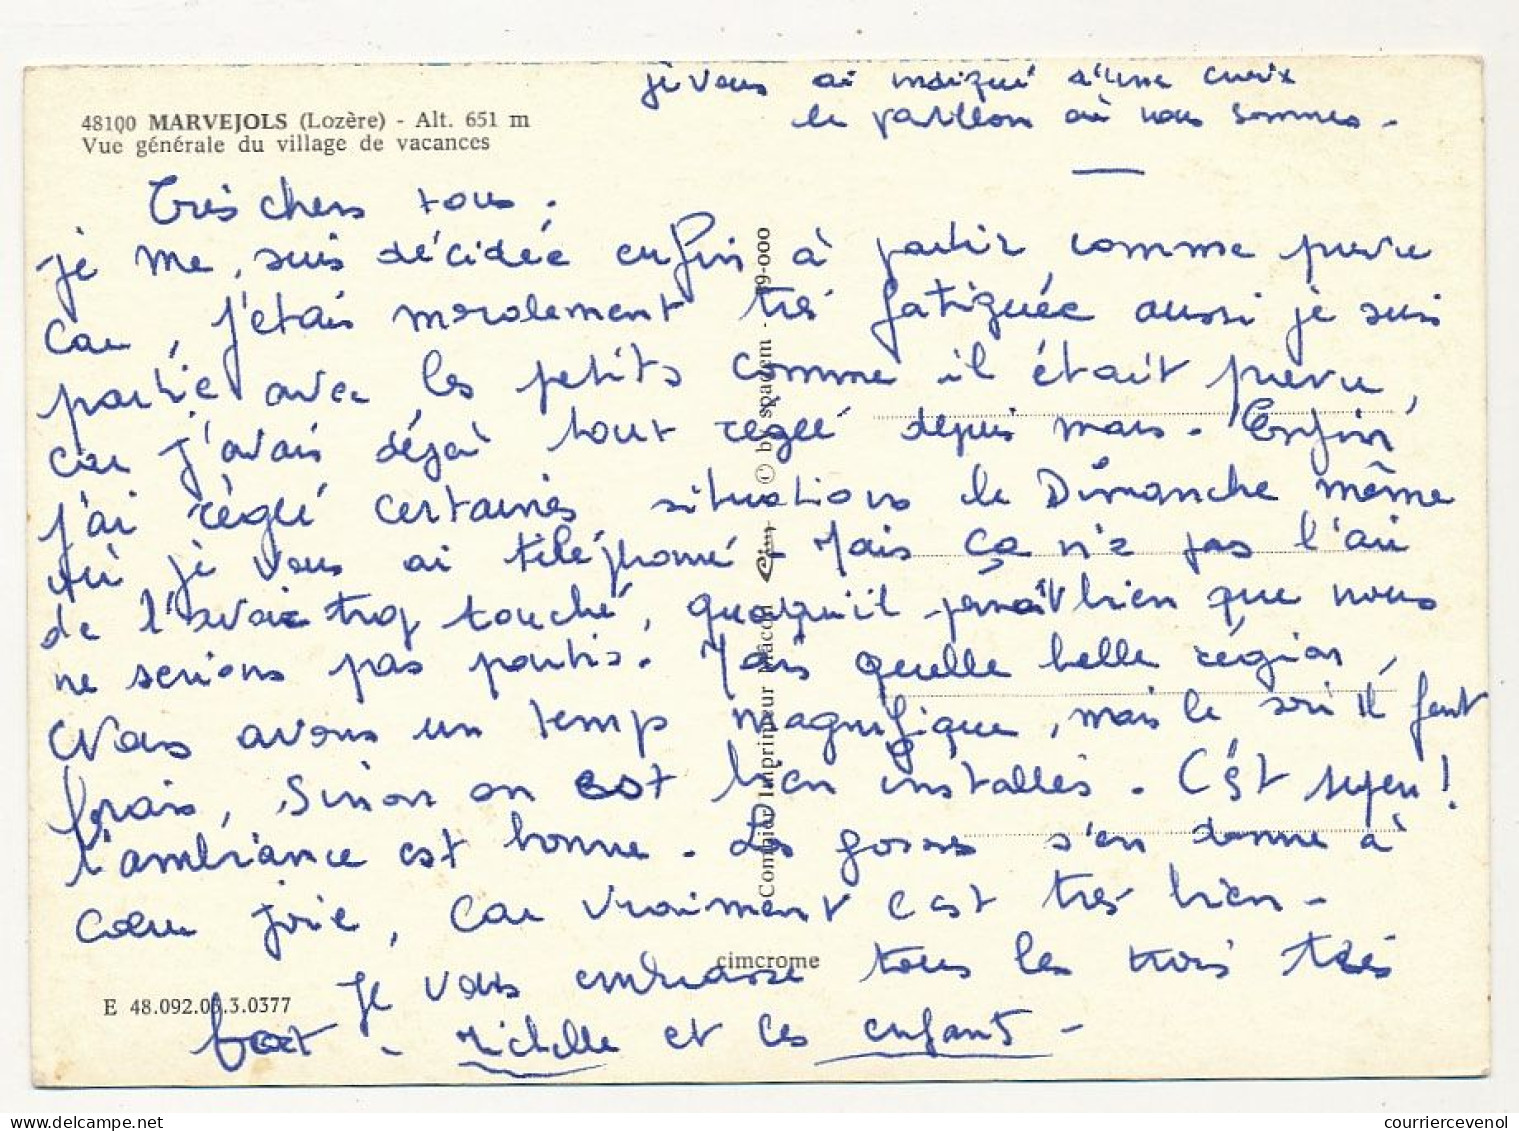 je vous ai indiqué d'une croix
le pavillon où nous sommes -
48100 MARVEJOLS (Lozère) - Alt. 651 m
Vue générale du village de vacances
Très chers tous.
je me suis décidée enfin à partir comme prévu
car, j'étais moralement très fatiguée aussi je suis
partie avec les petits comme il était prévu,
car j'avais déjà tout réglé depuis mars. Enfin
j'ai réglé certaines situations le Dimanche même
où je vous ai téléphoné - Mais ça n'a pas l'air
de l'avoir trop touché, quoiqu'il savait bien que nous
ne serions pas partis. Mais quelle belle région,
Nous avons un temp magnifique, mais le soir il fait
frais, sinon on est bien installés. C'est sympa!
l'ambiance est bonne - Les gosses s'en donne à
cœur joie, car vraiment c'est très bien -
Je vous embrasse tous les trois très
fort - Michelle et les enfants -
Combier Imprimeur Mâcon Cim © by spadem - 69-000
cimcrome
E 48.092.03.3.0377
courriercevenol